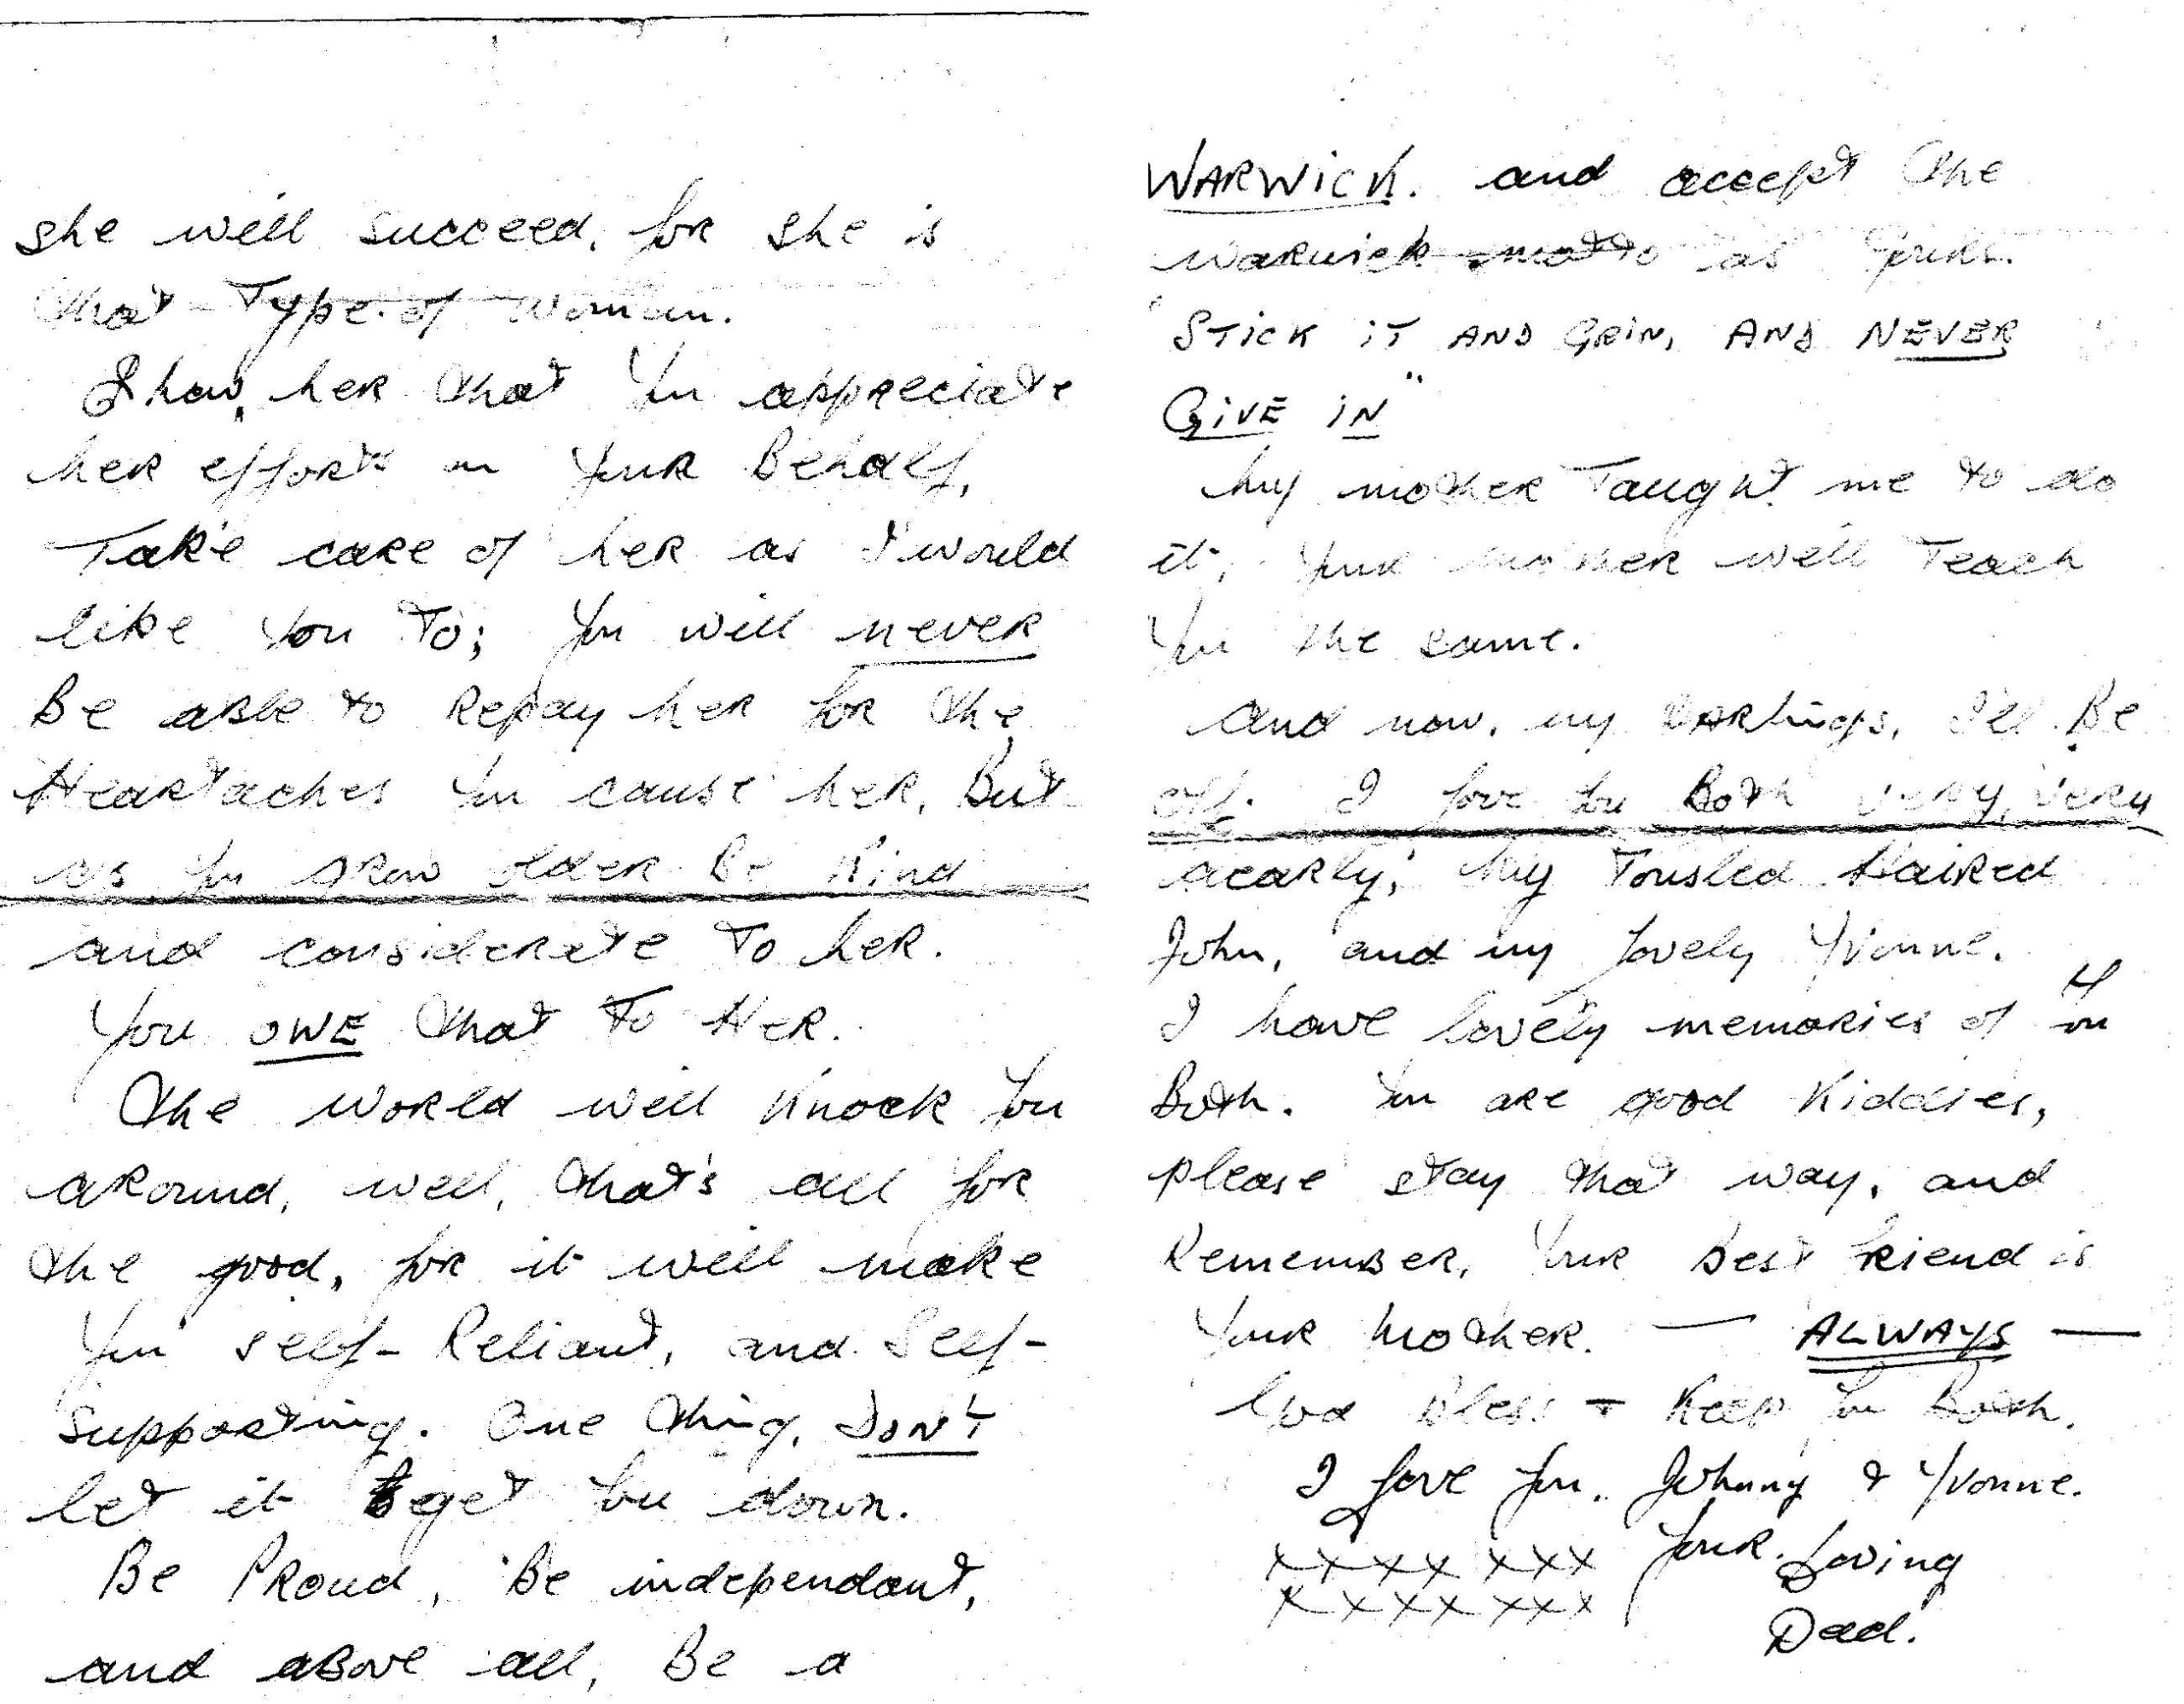 she will succeed, for she is
that Type of woman.
Show her that you appreciate
her efforts on your Behalf,
Take care of her as I would
like you To; you will never
Be able to Repay her for the
Heartaches you cause her, But
as you grow older Be Kind
and considerate To her.
You OWE that To Her.
The world will Knock you
around, well, that's all for
the good, for it will make
you self-Reliant, and Self-
supporting. One thing, DON'T
let it get you down.
Be Proud, Be independant,
and above all, Be a
WARWICK. and accept the
Warwick motto as yours.
"STICK IT AND GRIN, AND NEVER
GIVE IN"
My mother Taught me to do
it, your mother will Teach
you the same.
And now, my DARlings, I'll Be
off. I love you Both very, very
dearly; My Tousled Haired
John, and my lovely Yvonne.
I have lovely memories of you
Both. You are good Kiddies,
please stay that way, and
Remember, Your Best friend is
Your Mother. — ALWAYS —
God Bless + Keep you Both.
I love you, Johnny & Yvonne.
xxxx xxx Your Loving
xxxx xxx Dad.